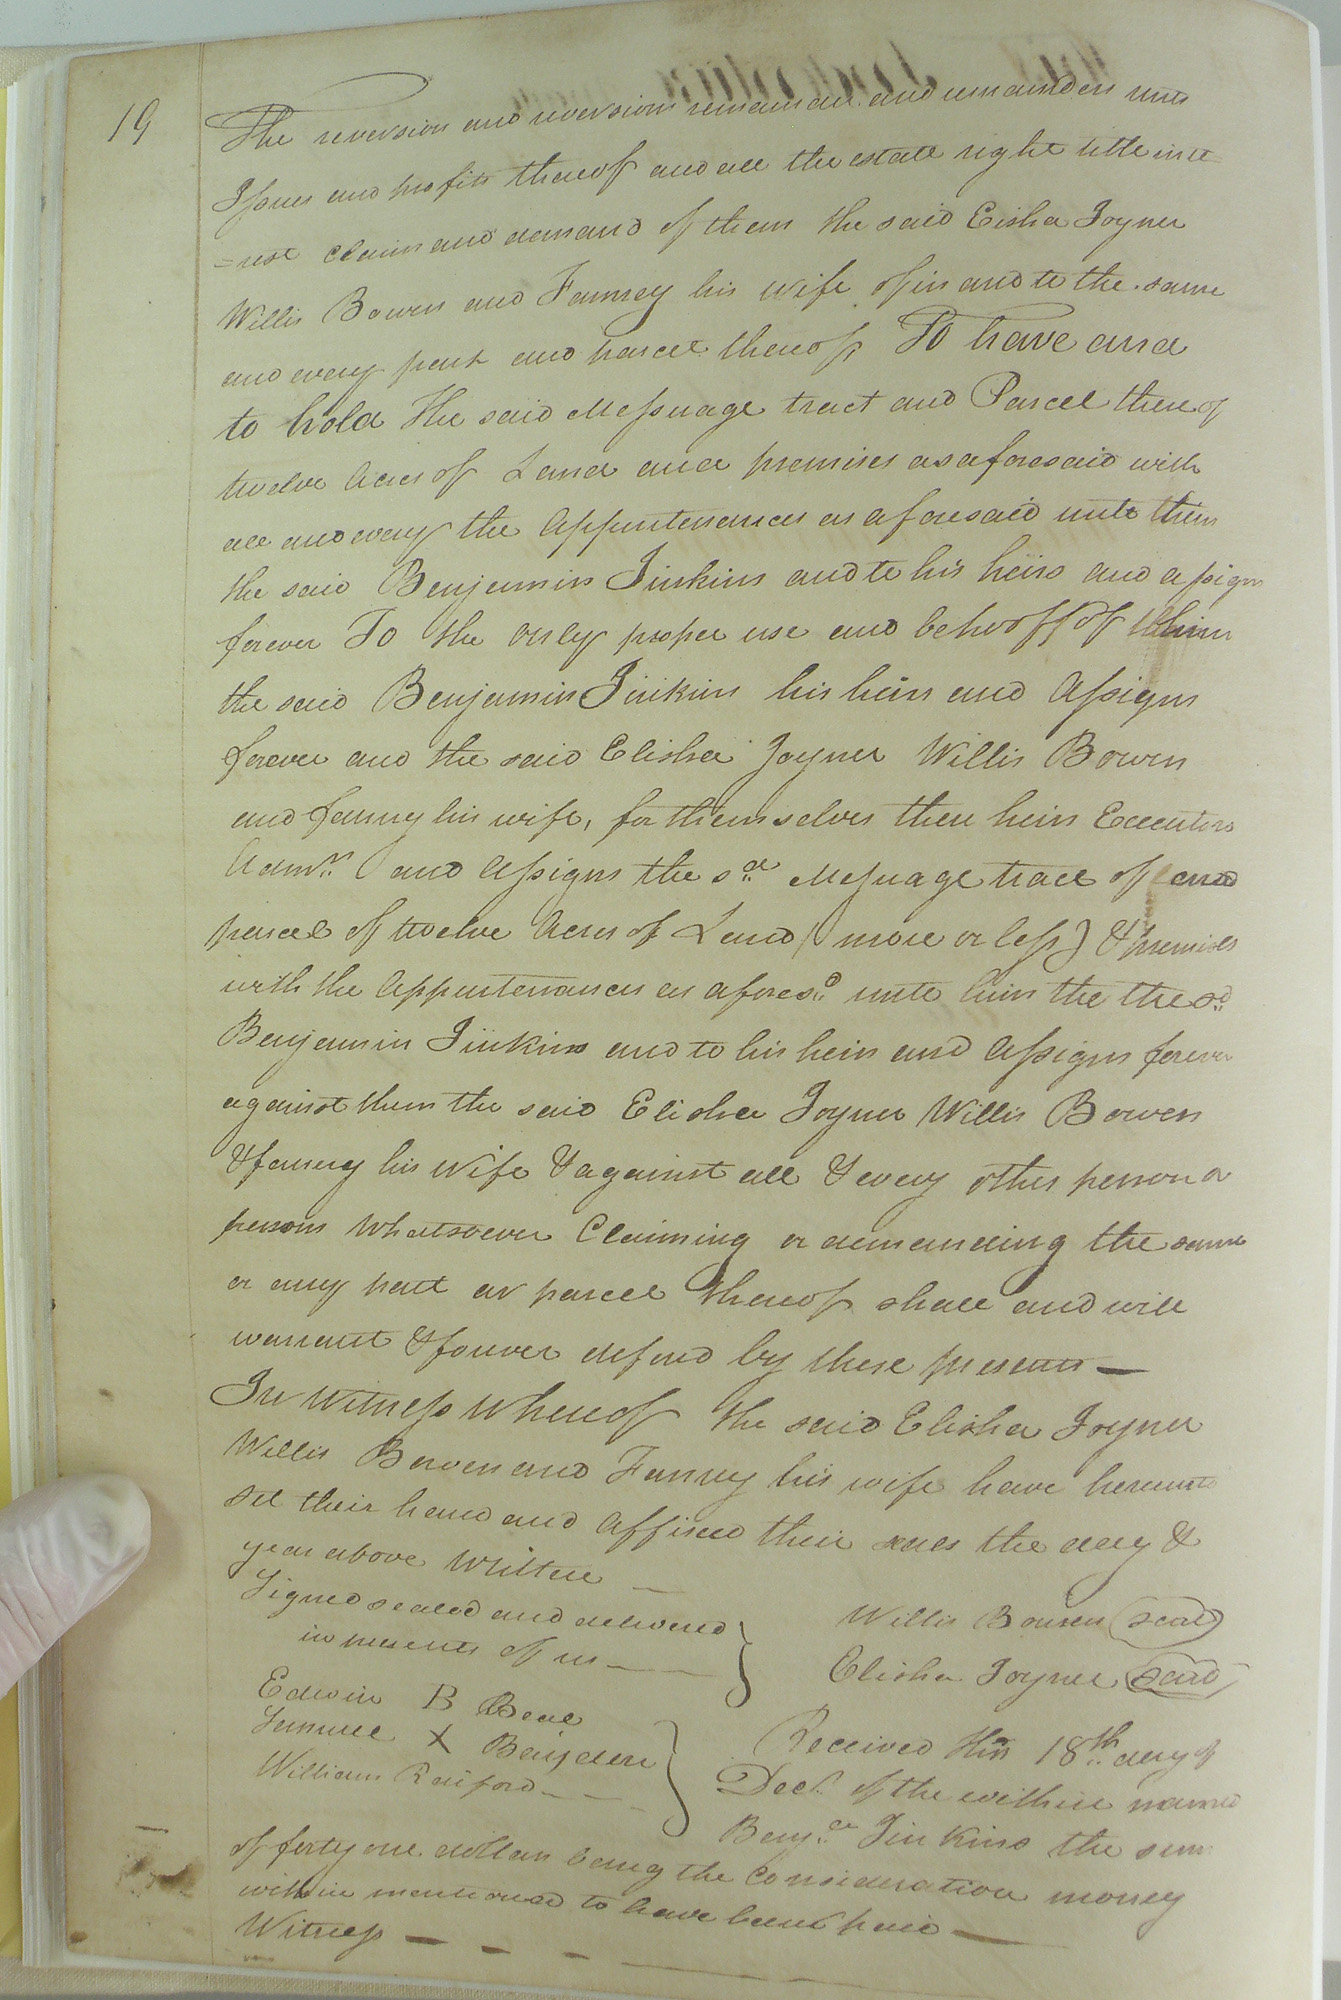 19
The reversion and reversions remainder and remainders rents
Issues and profits thereof and all the estate right title inte
=rest claim and demand of them the said Elisha Joyner
Willis Bowen and Fanney his wife of in and to the same
and every part and parcel thereof, To have and
to hold The said Messuage tract and Parcel there of
twelve Acres of Land and premises as aforesaid with
all and every the Appurtenances as aforesaid unto him
the said Benjamin Jinkins and to his heirs and assigns
forever To the only proper use and behooff of him
the said Benjamin Jinkins his heirs and Assigns
forever and the said Elisha Joyner Willis Bowen
and fanny his wife, for themselves their heirs Executors
Admrs and Assigns the sd Messuage tract of and
parcel of twelve Acres of Land (more or less) & premises
with the Appurtenances as aforesd unto him the the sd
Benjamin Jinkins and to his heirs and Assigns forever
against them the said Elisha Joyner Willis Bowen
& fanny his wife & against all & every other person or
persons Whatsoever Claiming or demanding the same
or any part or parcel thereof shall and will
warrant & forever defend by these presents —
In Witness Whereof the said Elisha Joyner
Willis Bowen and Fanny his wife have hereunto
set their hand and Affixed their seals the day &
year above Written —
Signed sealed and delivered
in presents of us
Willis Bowen (seal)
Elisha Joyner (seal)
Edwin B Beal
Lemuel X Bayden
William Raiford
Received this 18th day of
Decr of the within named
Benja Jinkins the sum
of forty one dollars being the Consideration money
within mentioned to have been paid —
Witness — — —